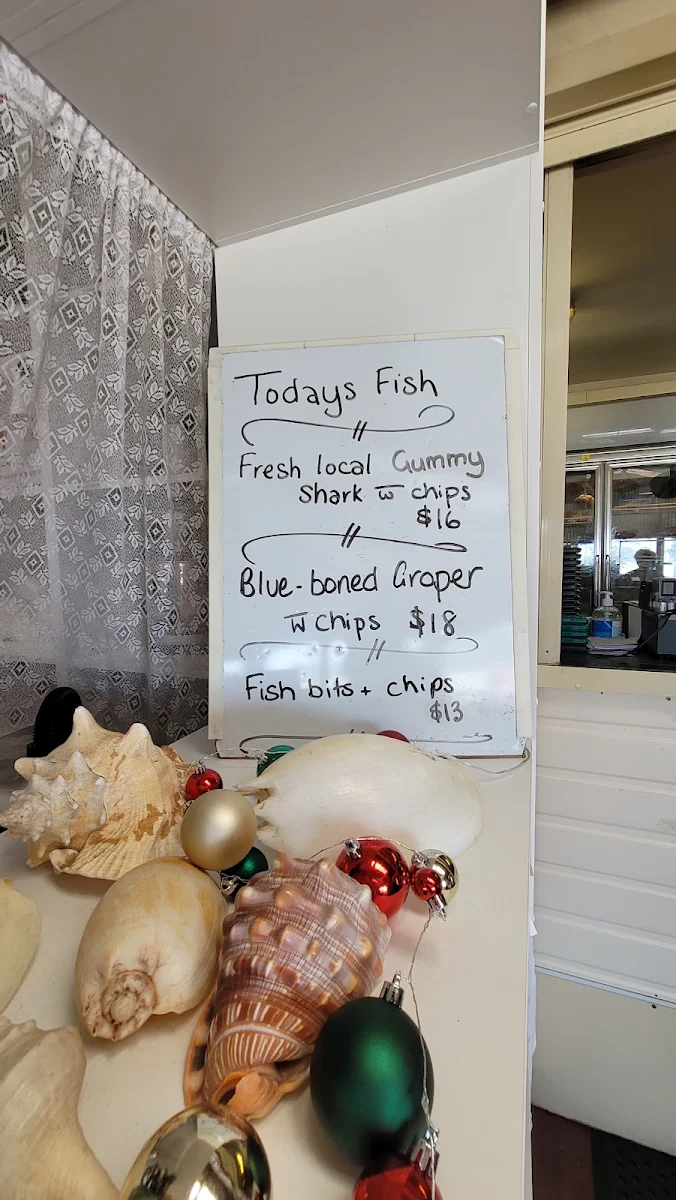 Todays Fish
Fresh local Gummy
Shark w̅ chips
$16
Blue-boned Groper
w̅ chips $18
Fish bits + chips
$13